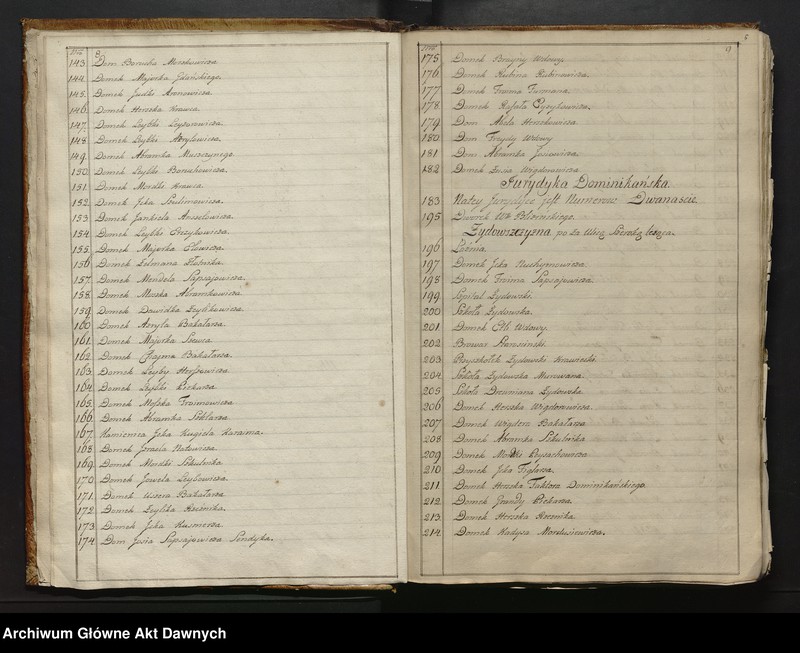 143 Dom Borucha Moszkowicza
144. Domek Majorka Gdańskiego.
145. Domek Judki Aronowicza
146. Domek Herszka Krawca.
147. Domek Leybki Leyzerowicza.
148. Domek Leybki Abrylowicza.
149. Domek Abramka Muszczynego
150. Domek Leybki Boruchowicza.
151. Domek Mordki Krawca.
152. Domek Joka Szulimowicza.
153. Domek Jankiela Anszelowicza.
154. Domek Leybki Orzykowicza.
155. Domek Majorka Eliowicza.
156 Domek Zelmana Złotnika.
157. Domek Mendela Sapsajowicza.
158. Domek Moszka Abramkowicza
159. Domek Dawidka Leybkowicza.
160 Domek Azryla Bakałarza.
161. Domek Majorka Szewca.
162. Domek Chayma Bakałarza.
163. Domek Leyby Herszowicza
164 Domek Leybki Piekarza
165. Domek Moszka Froimowicza
166. Domek Abramka Szklarza.
167. Kamienica Joka Kugiela Karaima.
168. Domek Jzraela Notowicza.
169. Domek Mordki Szkulnika
170 Domek Joweła Leybowicza.
171. Domek Uszera Bakałarza
172. Domek Leybka Rzeznika.
173 Domek Joka Kusznierza
174. Dom Josia Sapsajowicza Syndyka.
5
175. Domek Brayny Wdowy.
176. Domek Rubina Rubinowicza.
177 Domek Froima Furmana.
178. Domek Rafała Eyzykowicza.
179. Dom Abla Herszkowicza
180. Dom Fraydy Wdowy
181. Dom Abramka Josiowicza
182. Domek Lusia Wigdorowicza
Jurydyka Dominikańska.
183 Natey Jurydyce jest Numerow Dwanascie.
195 Dworek
Zydowszczyzna po za Ulicą Szeroką leząca.
196. Łaźnia.
197. Domek Joka Nuchymowicza.
198 Domek Froima Sapsajowicza.
199 Szpital Zydowski.
200 Szkoła Zydowska.
201. Domek Elli Wdowy.
202. Browar
203 Przyszkołek Zydowski Krawiecki.
204. Szkoła Zydowska Murowana.
205 Szkoła Drewniana Zydowska.
206 Domek Herszka Wigdorowicza.
207 Domek Wigdora Bakałarza
208. Domek Abramka Szkulnika
209 Domek Mordki Peysachowicza
210 Domek Joka Figlarza.
211. Domek Herszka Faktora Dominikańskiego
212. Domek Grandy Piekarza.
213. Domek Herszka Rzeznika
214. Domek Kadysza Mordusiewicza.
Archiwum Główne Akt Dawnych